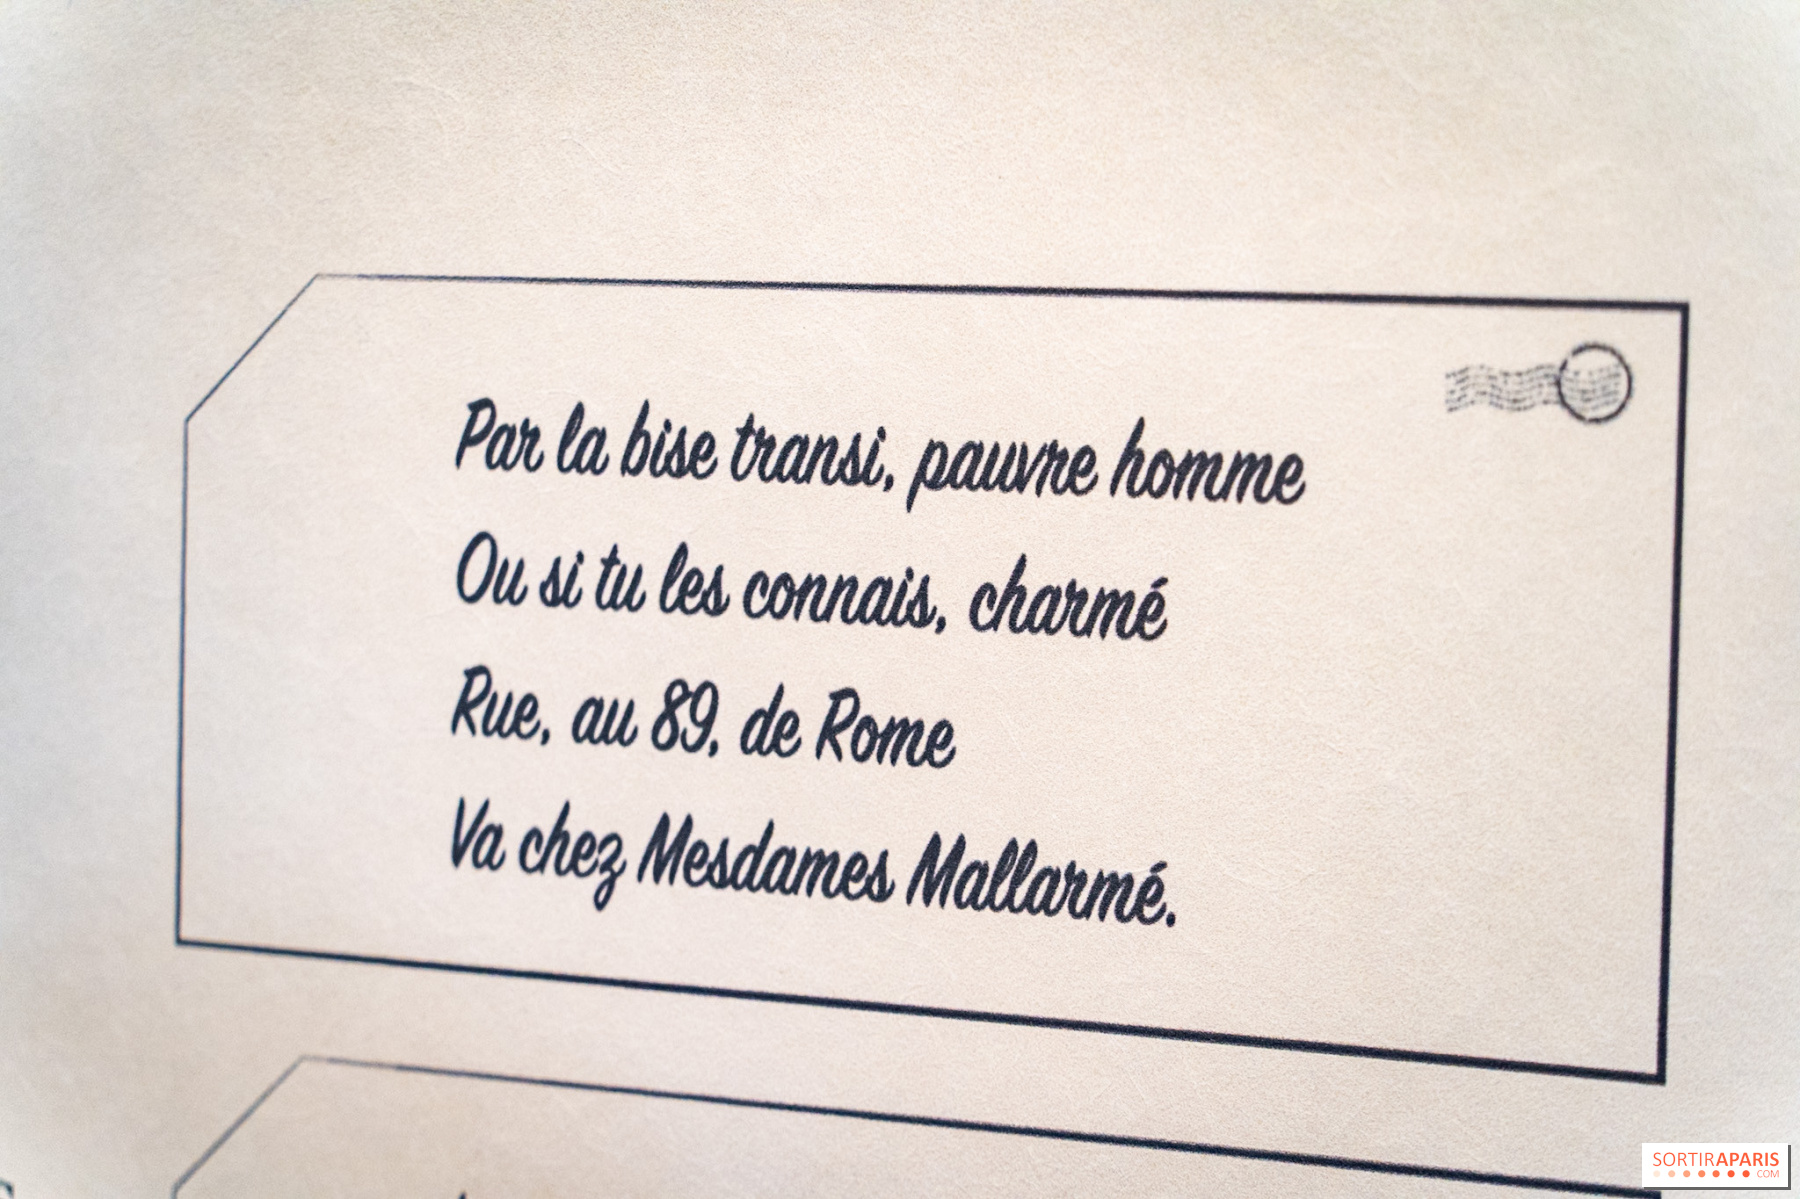 Par la bise transi, pauvre homme
Ou si tu les connais, charmé
Rue, au 89, de Rome
Va chez Mesdames Mallarmé.
SORTIRAPARIS
.COM